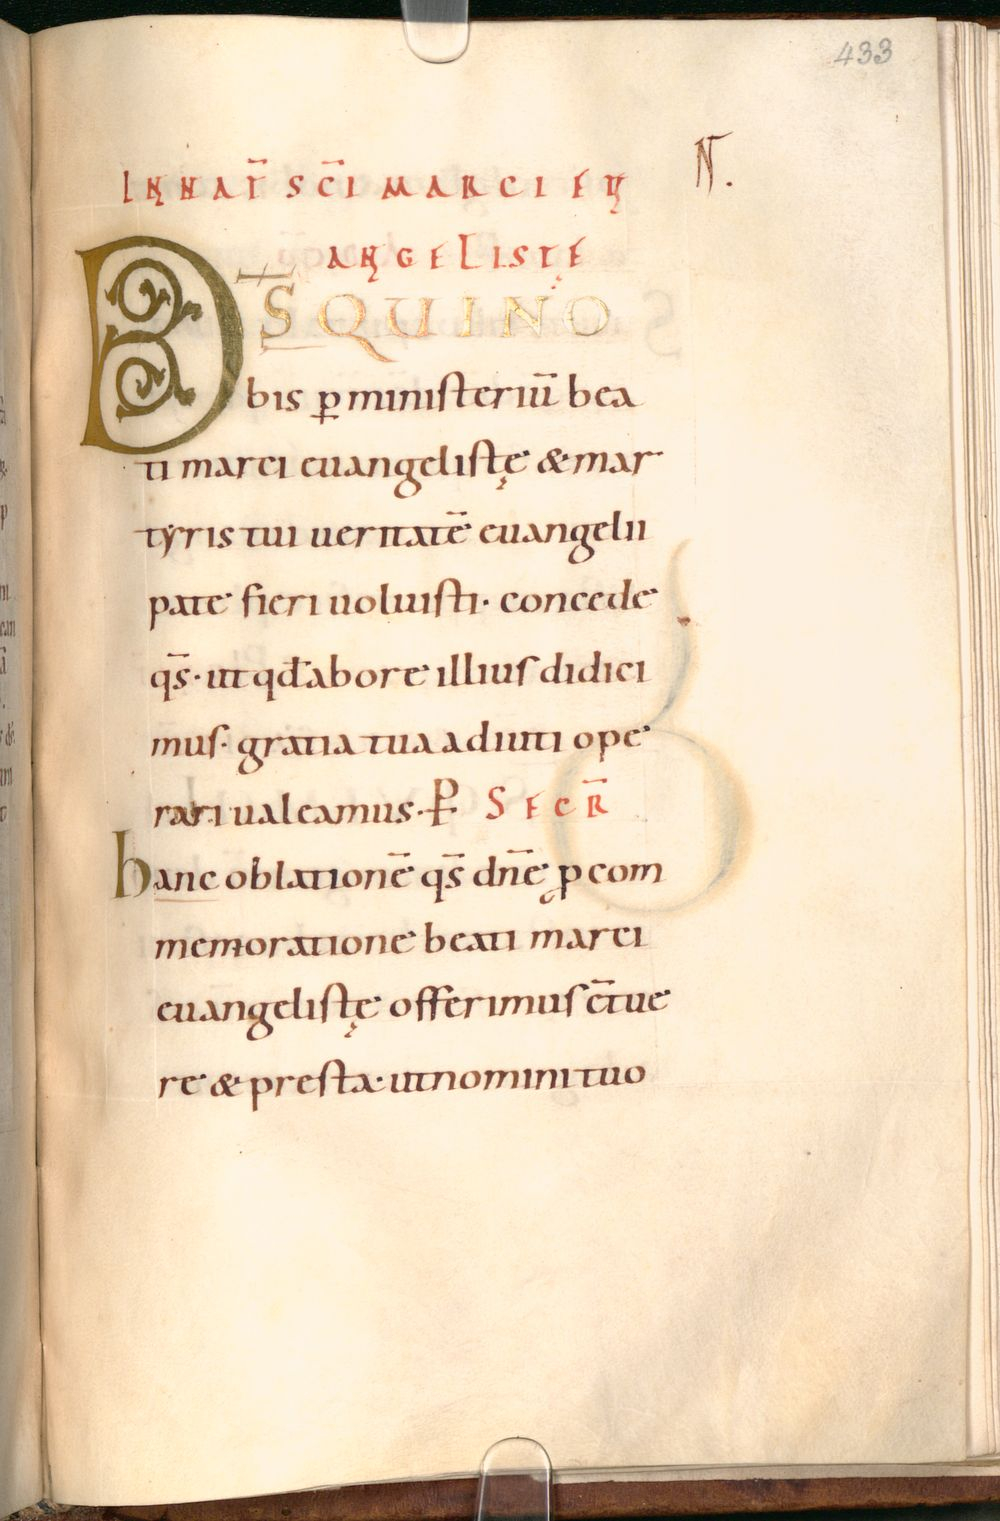 433
N̄.
IN NAT̄ SC̄I MARCI EU
ANGELISTĘ
D̄S QUI NO
bis p̲ ministeriū bea
ti marci euangelistę & mar
tyris tui ueritatē euangelii
pate fieri uoluisti· concede
q̄s· ut qđ abore illius didici
mus· gratia tua adiuti ope
rari ualeamus· P̱ SECR̄
hanc oblationē q̄s dn̄e ꝓ com
memoratione beati marci
euangelistę offerimus c̄tue
re & presta· ut nomini tuo